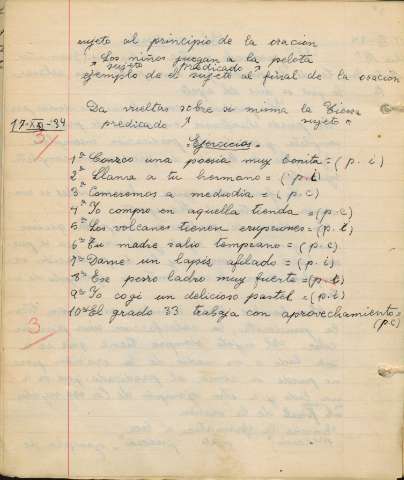 sujeto al principio de la oración
Los niños juegan a la pelota
sujeto predicado
ejemplo de el sujeto al final de la oración
Da vueltas sobre si misma la Tierra
17-XI-34 predicado sujeto
Ejercicios
1ª Conozco una poesia muy bonita = (p. i)
2ª Llama a tu hermano = (p. t)
3ª Comeremos a mediodia = (p. c)
4ª Yo compro en aquella tienda = (p. c)
5ª Los volcanes tienen erupciones = (p. t)
6ª Tu madre salio temprano = (p. c)
7ª Dame un lapis afilado = (p. i)
8ª Ese perro ladro muy fuerte = (p. t)
9ª Yo cogi un delicioso pastel = (p. t)
10ª El grado 33 trabja con aprovechamiento =
(p. c)
3